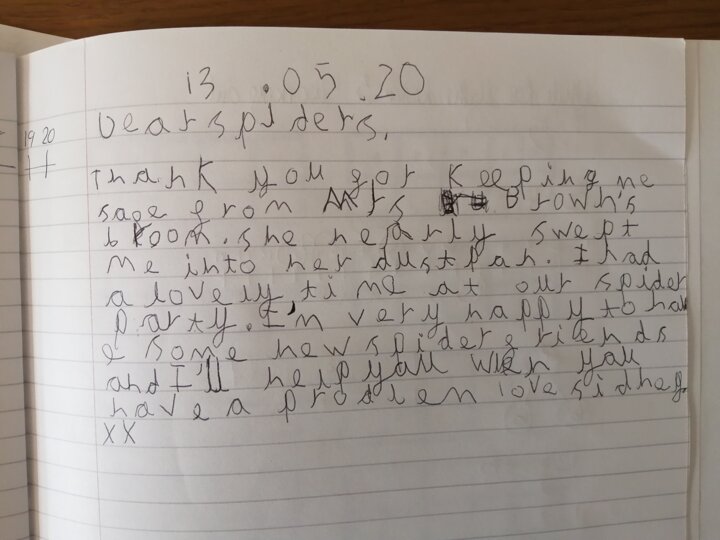 13.05.20
Dear spiders,
19 20
Thank you for Keeping me
safe from Mrs Brown's
broom. she nearly swept
me into her dustpan. I had
a lovely, time at our spider
party. I'm very happy to hav
e some new spider friends
and I'll help you when you
have a problem love sidney.
xx